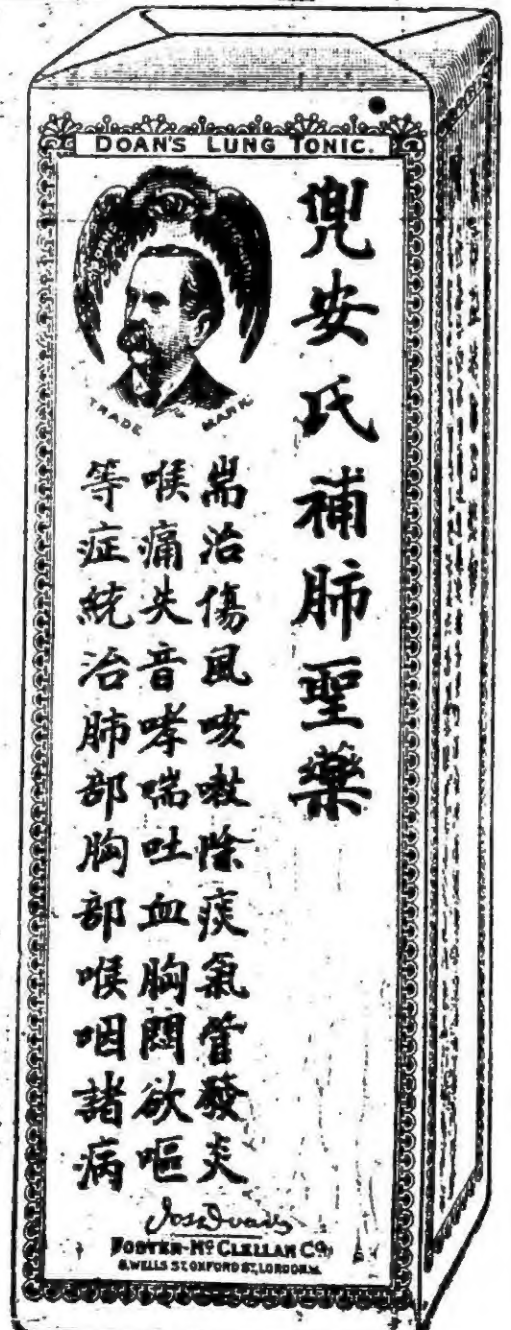 DOAN'S LUNG TONIC.
TRADE MARK
兜安氏補肺聖藥
耑治傷風咳嗽除痰氣管發炎
喉痛失音哮喘吐血胸悶欲嘔
等症統治肺部胸部喉咽諸病
Jos Doan
FOSTER-McCLELLAN Co.
8, WELLS ST. OXFORD ST, LONDON.W.